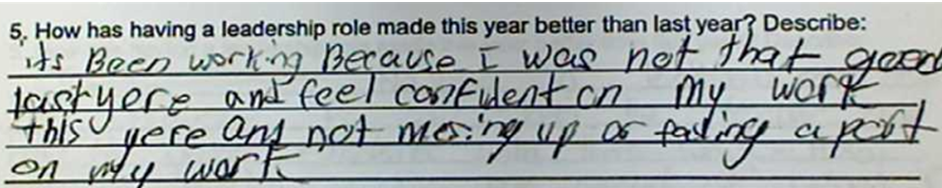 5. How has having a leadership role made this year better than last year? Describe:
its Been working Because I was not that good
last yere and feel confident on my work
this yere and not messing up or falling a part
on my work